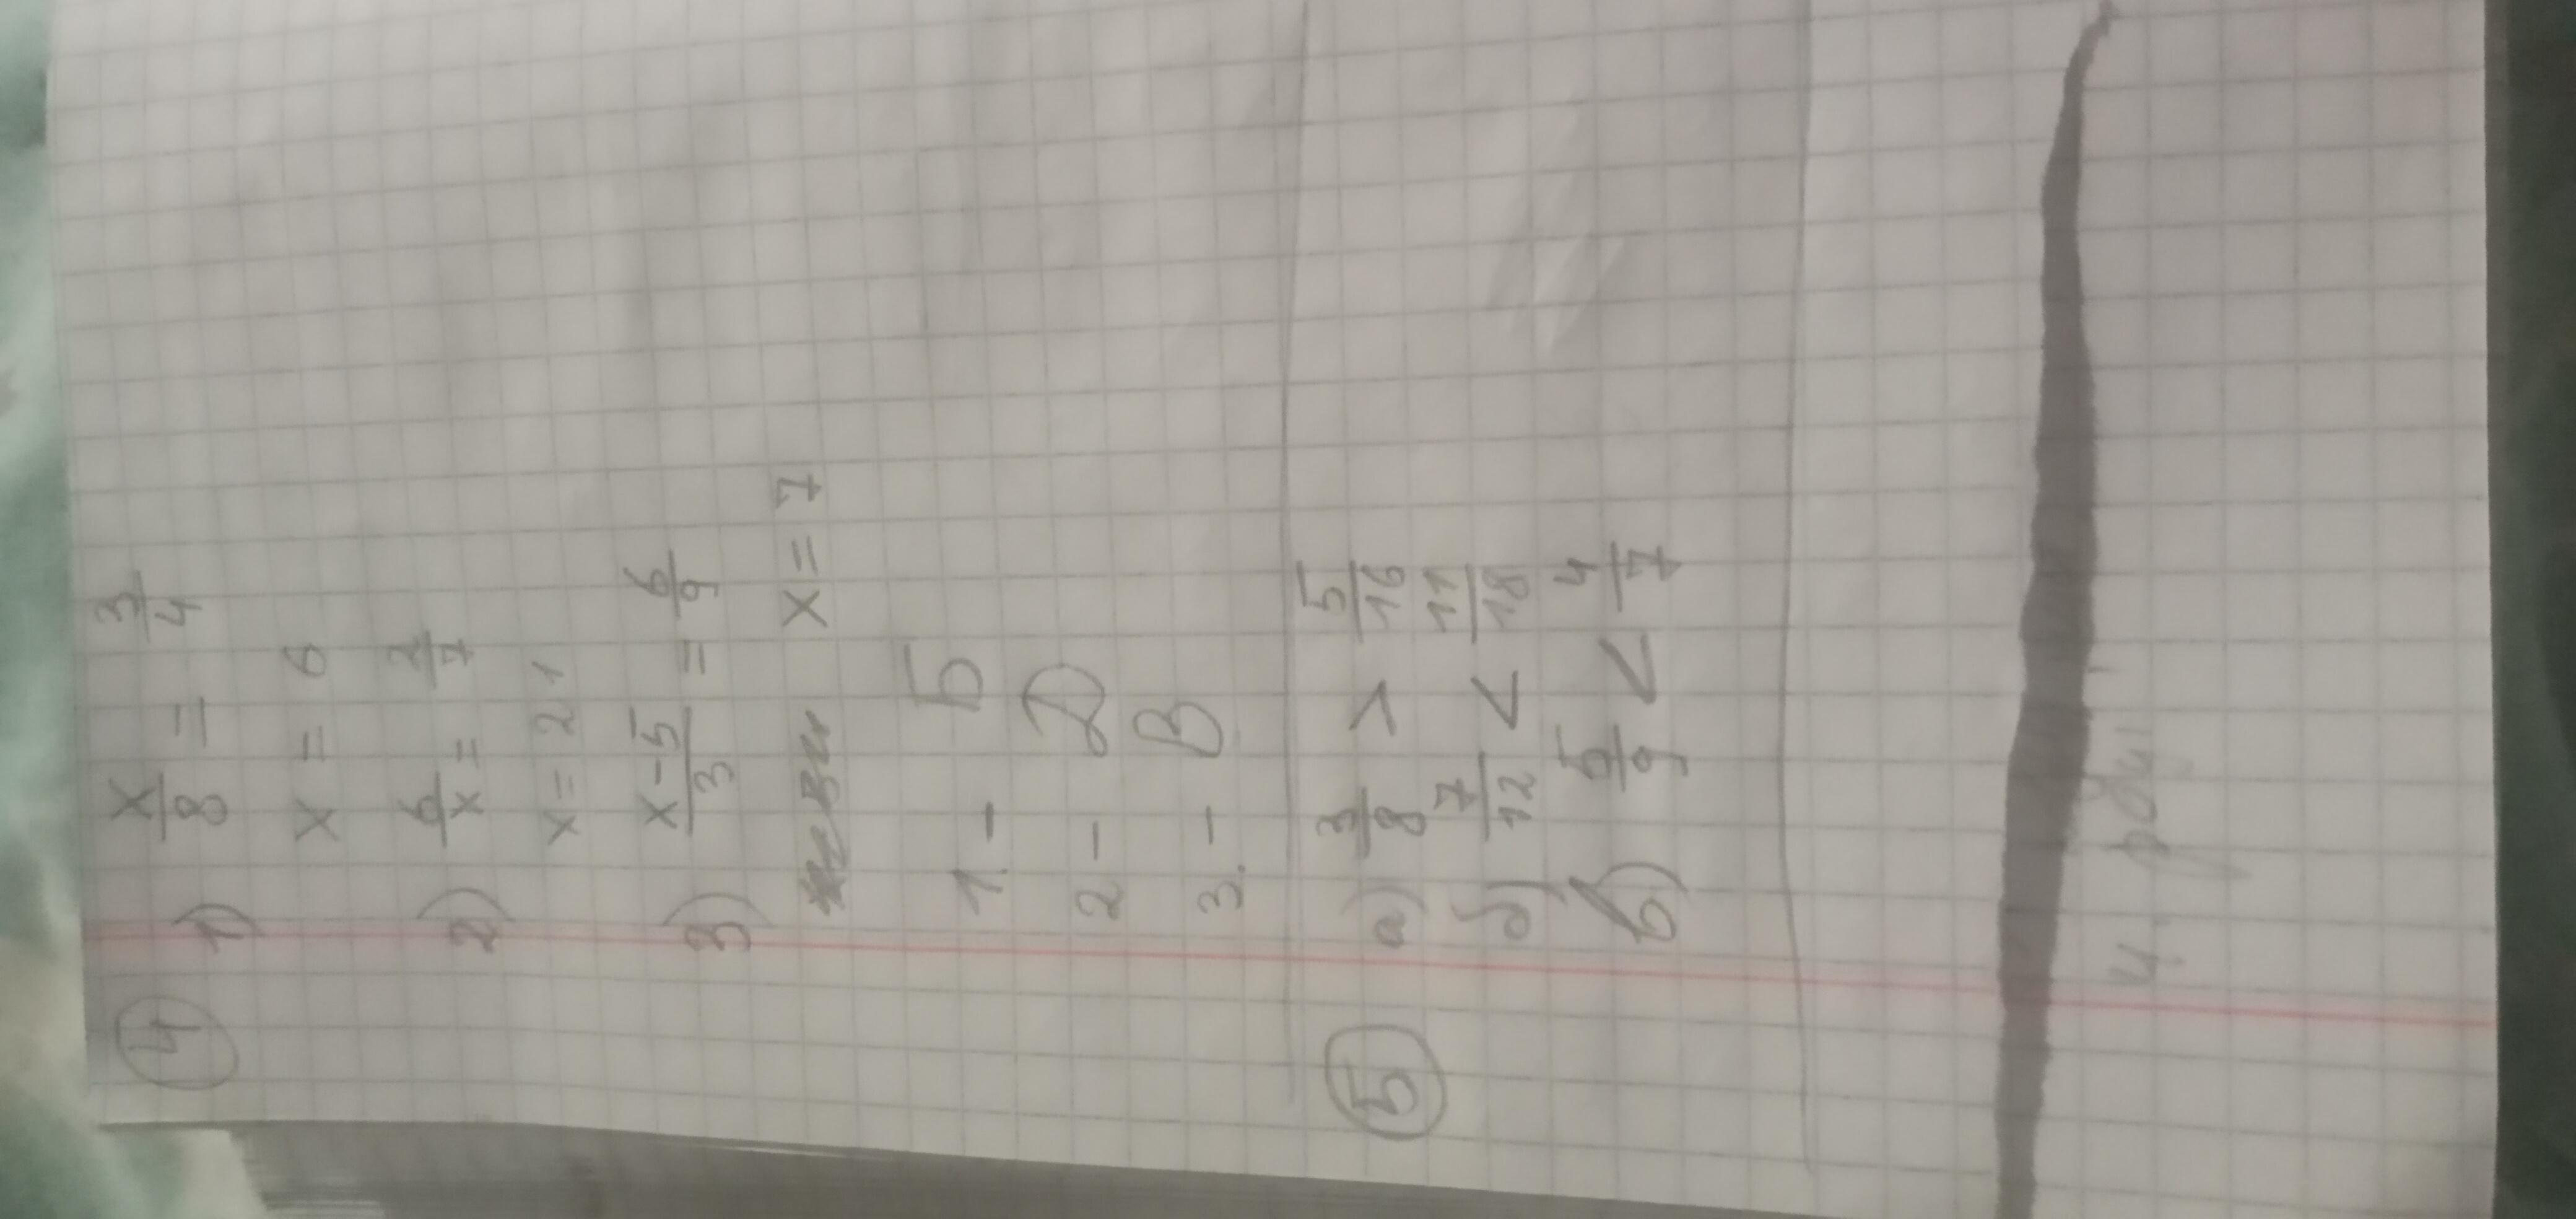 4
1) x/8 = 3/4
x = 6
2) 6/x = 2/7
x = 21
3) x-5/3 = 6/9
x = 7
1. - Б
2 - Д
3. - В
5
а) 3/8 > 5/16
б) 7/12 < 11/18
в) 5/9 < 4/7